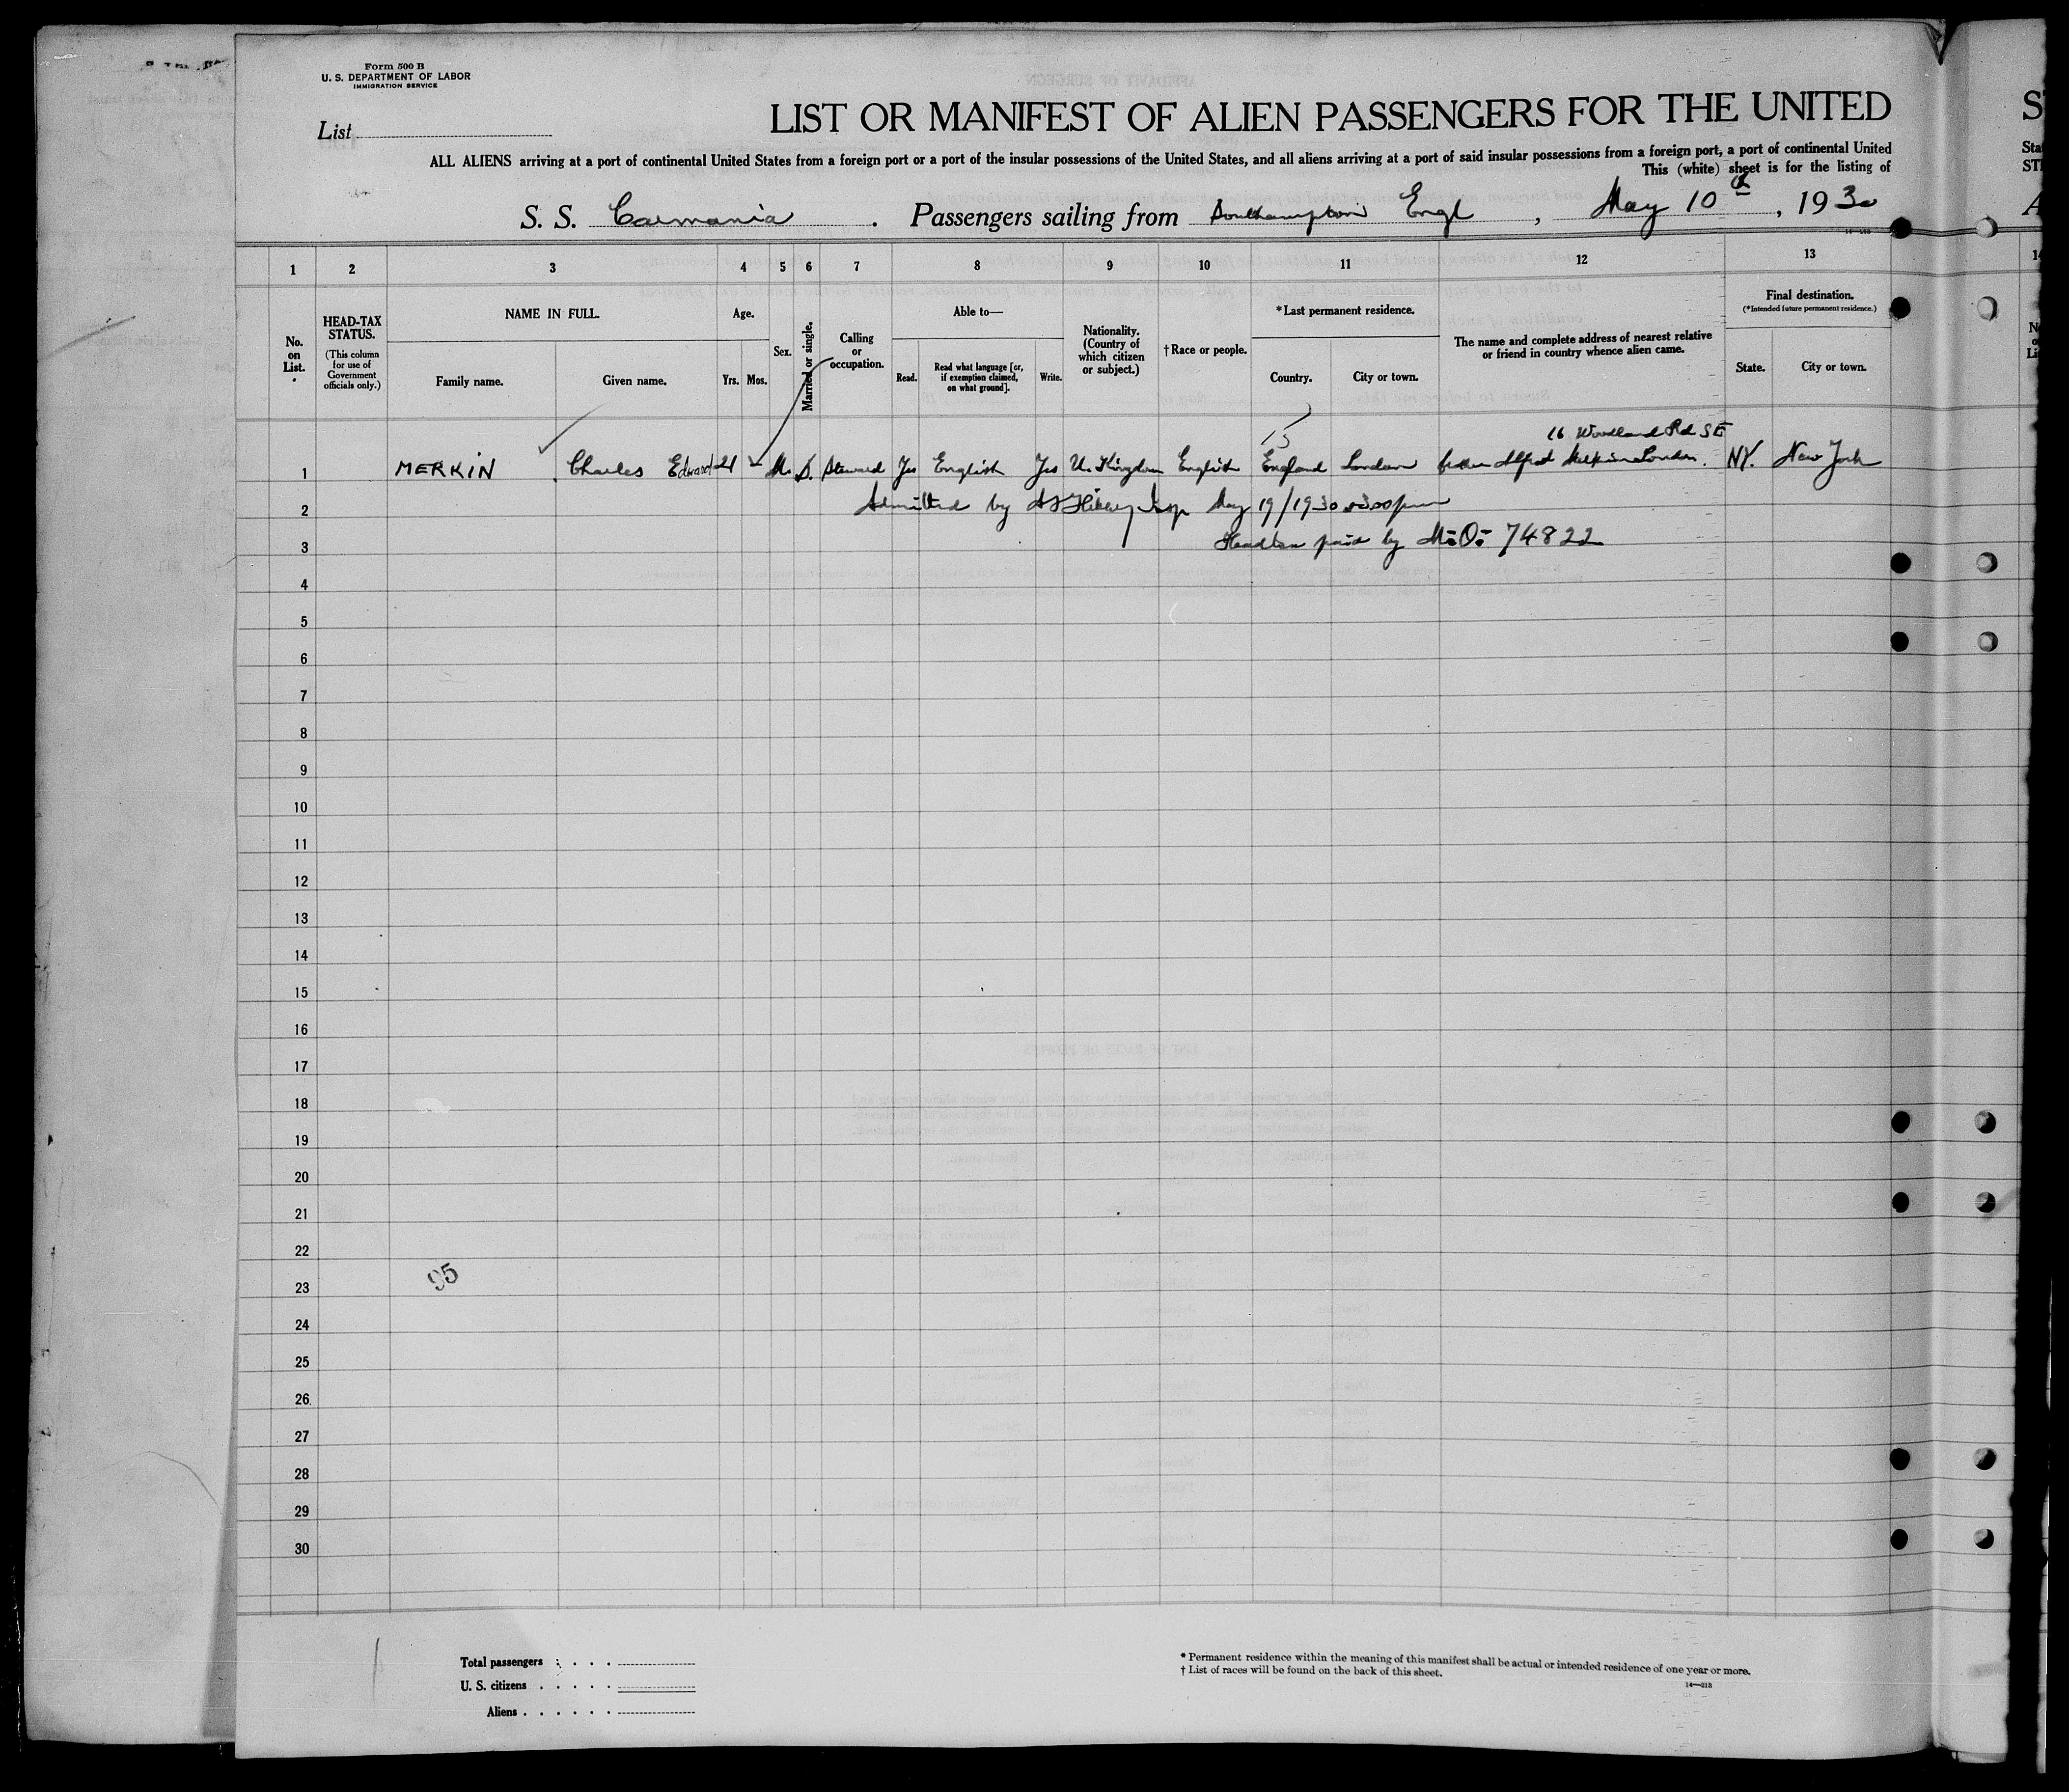 Form 500 B
U. S. DEPARTMENT OF LABOR
IMMIGRATION SERVICE
List
LIST OR MANIFEST OF ALIEN PASSENGERS FOR THE UNITED
ALL ALIENS arriving at a port of continental United States from a foreign port or a port of the insular possessions of the United States, and all aliens arriving at a port of said insular possessions from a foreign port, a port of continental United
This (white) sheet is for the listing of
S. S. Carmania . Passengers sailing from Southampton Engl , May 10th , 1930
1 2 3 4 5 6 7 8 9 10 11 12 13
No. on List.
HEAD-TAX STATUS.
(This column for use of Government officials only.)
NAME IN FULL.
Family name.
Given name.
Age.
Yrs. Mos.
Sex.
Married or single.
Calling or occupation.
Able to—
Read.
Read what language [or, if exemption claimed, on what ground].
Write.
Nationality. (Country of which citizen or subject.)
† Race or people.
*Last permanent residence.
Country.
City or town.
The name and complete address of nearest relative or friend in country whence alien came.
Final destination.
(*Intended future permanent residence.)
State.
City or town.
15
16 Woodland Rd SE
1 MERKIN Charles Edward 21 M. S. Steward Yes English Yes U. Kingdom English England London father Alfred Merkin London. NY. New York
2 Admitted by Insp May 19/1930 300pm
3 Headtax paid by M.O. 74822
4
5
6
7
8
9
10
11
12
13
14
15
16
17
18
19
20
21
22
95
23
24
25
26
27
28
29
30
Total passengers
U. S. citizens
Aliens
* Permanent residence within the meaning of this manifest shall be actual or intended residence of one year or more.
† List of races will be found on the back of this sheet.
14—213